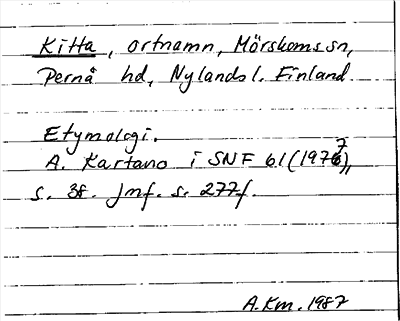 Kitta, ortnamn, Mörskoms sn,
Pernå hd, Nylands l. Finland.
Etymologi.
A. Kartano i SNF 61 (1977),
s. 38. Jmf. s. 277f.
A.Km. 1987